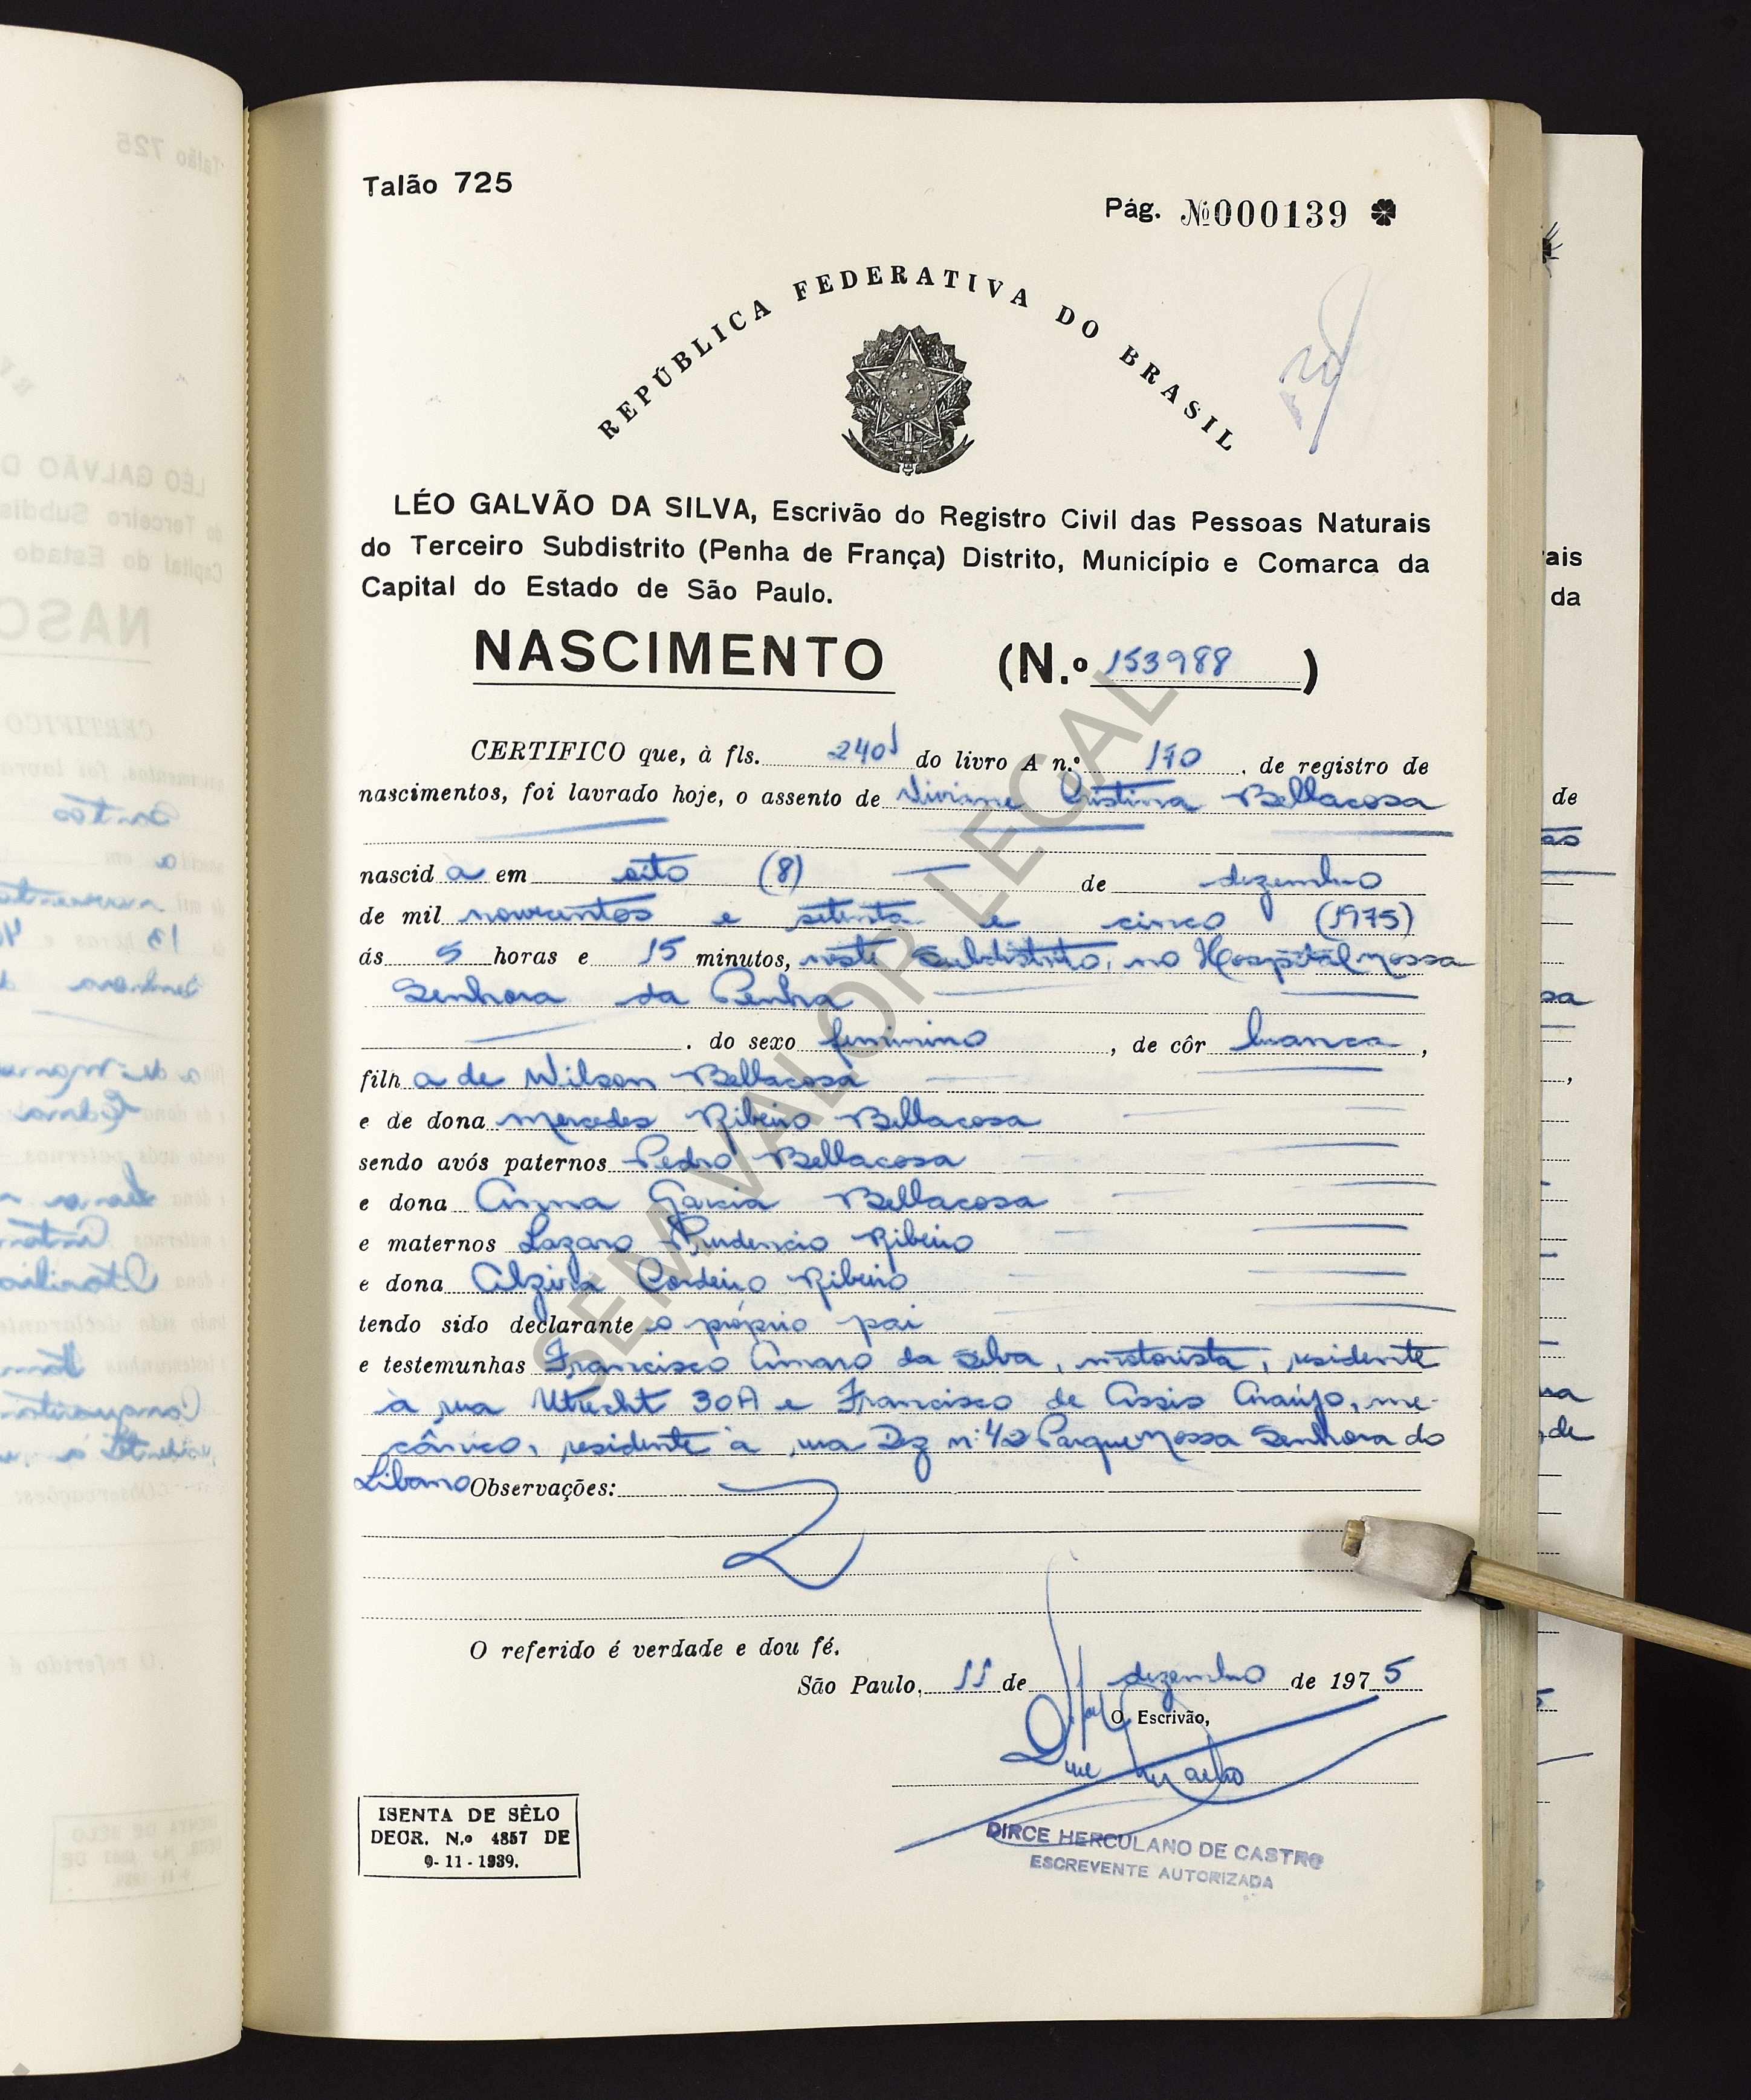 Talão 725
Pág. №000139
REPÚBLICA FEDERATIVA DO BRASIL
LÉO GALVÃO DA SILVA, Escrivão do Registro Civil das Pessoas Naturais
do Terceiro Subdistrito (Penha de França) Distrito, Município e Comarca da
Capital do Estado de São Paulo.
NASCIMENTO (N.º 153988)
CERTIFICO que, à fls. 240 do livro A n.º 170, de registro de
nascimentos, foi lavrado hoje, o assento de Viviane Cristina Bellacosa
nascida em oito (8) de dezembro
de mil novecentos e setenta e cinco (1975)
ás 5 horas e 15 minutos, neste Subdistrito, no Hospital Nossa
Senhora da Penha
. do sexo feminino, de côr branca,
filha de Wilson Bellacosa
e de dona Mercedes Ribeiro Bellacosa
sendo avós paternos Pedro Bellacosa
e dona Anna Garcia Bellacosa
e maternos Lazaro Prudencio Ribeiro
e dona Alzira Cordeiro Ribeiro
tendo sido declarante o próprio pai
e testemunhas Francisco Amaro da Silva, motorista, residente
à rua Utrecht 30A e Francisco de Assis Araújo, me-
cânico, residente à rua Dez nº 42 Parque Nossa Senhora do
Libano Observações:
O referido é verdade e dou fé.
São Paulo, 11 de dezembro de 1975
O Escrivão,
DIRCE HERCULANO DE CASTRO
ESCREVENTE AUTORIZADA
ISENTA DE SÊLO
DECR. N.º 4857 DE
9-11-1939.
SEM VALOR LEGAL